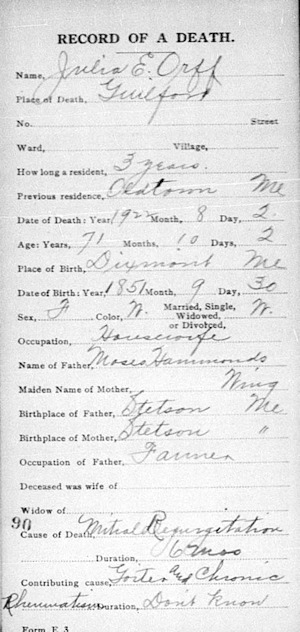 RECORD OF A DEATH.
Name, Julia E. Orff
Place of Death, Guilford
No. Street
Ward, Village,
How long a resident, 3 years.
Previous residence, Oldtown Me
Date of Death: Year, 1922 Month, 8 Day, 2.
Age: Years, 71 Months, 10 Days, 2
Place of Birth, Dixmont Me
Date of Birth: Year, 1851 Month, 9 Day, 30
Sex, F Color, W. Married, Single, Widowed, or Divorced, W.
Occupation, Housewife
Name of Father, Moses Hammonds
Maiden Name of Mother, Wing
Birthplace of Father, Stetson Me
Birthplace of Mother, Stetson "
Occupation of Father, Farmer
Deceased was wife of
Widow of
90
Cause of Death, Mitral Regurgitation
Duration, 6 mos
Contributing cause, Goiter and Chronic
Rheumatism Duration, Don't Know
Form E 3